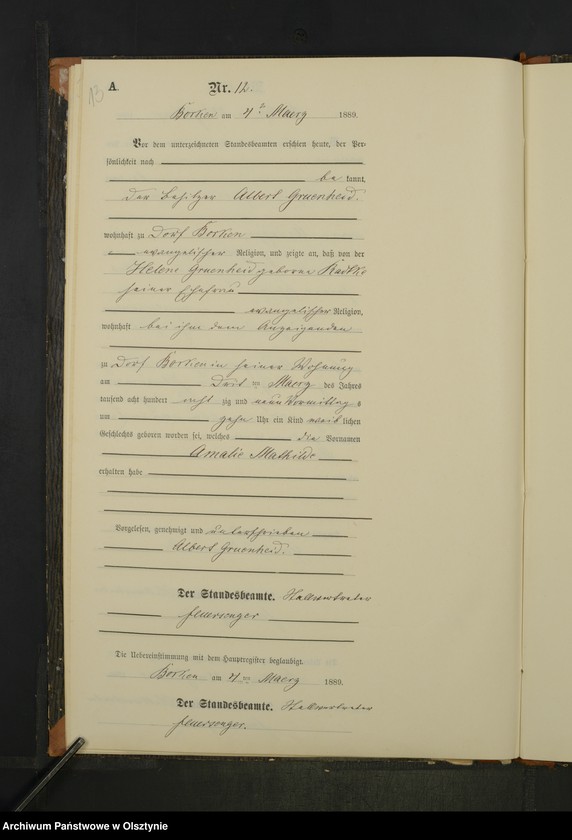 13
A.
Nr. 12.
Borken am 4ten Maerz 1889.
Vor dem unterzeichneten Standesbeamten erschien heute, der Per-
sönlichkeit nach
be kannt,
der Besitzer Albert Gruenheid.
wohnhaft zu Dorf Borken
evangelischer Religion, und zeigte an, daß von der
Helene Gruenheid geborne Radtke
seiner Ehefrau
evangelischer Religion,
wohnhaft bei ihm dem Anzeigenden
zu Dorf Borken in seiner Wohnung
am Drit ten Maerz des Jahres
tausend acht hundert acht zig und neun Vormittag s
um zehn Uhr ein Kind weib lichen
Geschlechts geboren worden sei, welches die Vornamen
Amalie Mathilde
erhalten habe
Vorgelesen, genehmigt und unterschrieben
Albert Gruenheid.
Der Standesbeamte.
Die Uebereinstimmung mit dem Hauptregister beglaubigt.
Borken am 4ten Maerz 1889.
Der Standesbeamte.
Archiwum Państwowe w Olsztynie